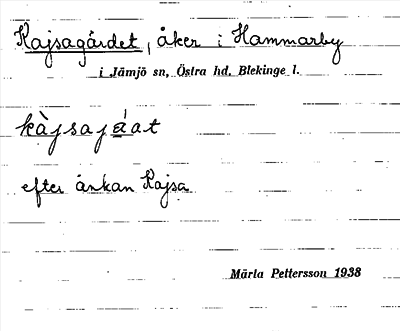 Kajsagärdet, åker i Hammarby
i Jämjö sn, Östra hd, Blekinge l.
efter änkan Kajsa
Märta Pettersson 1938